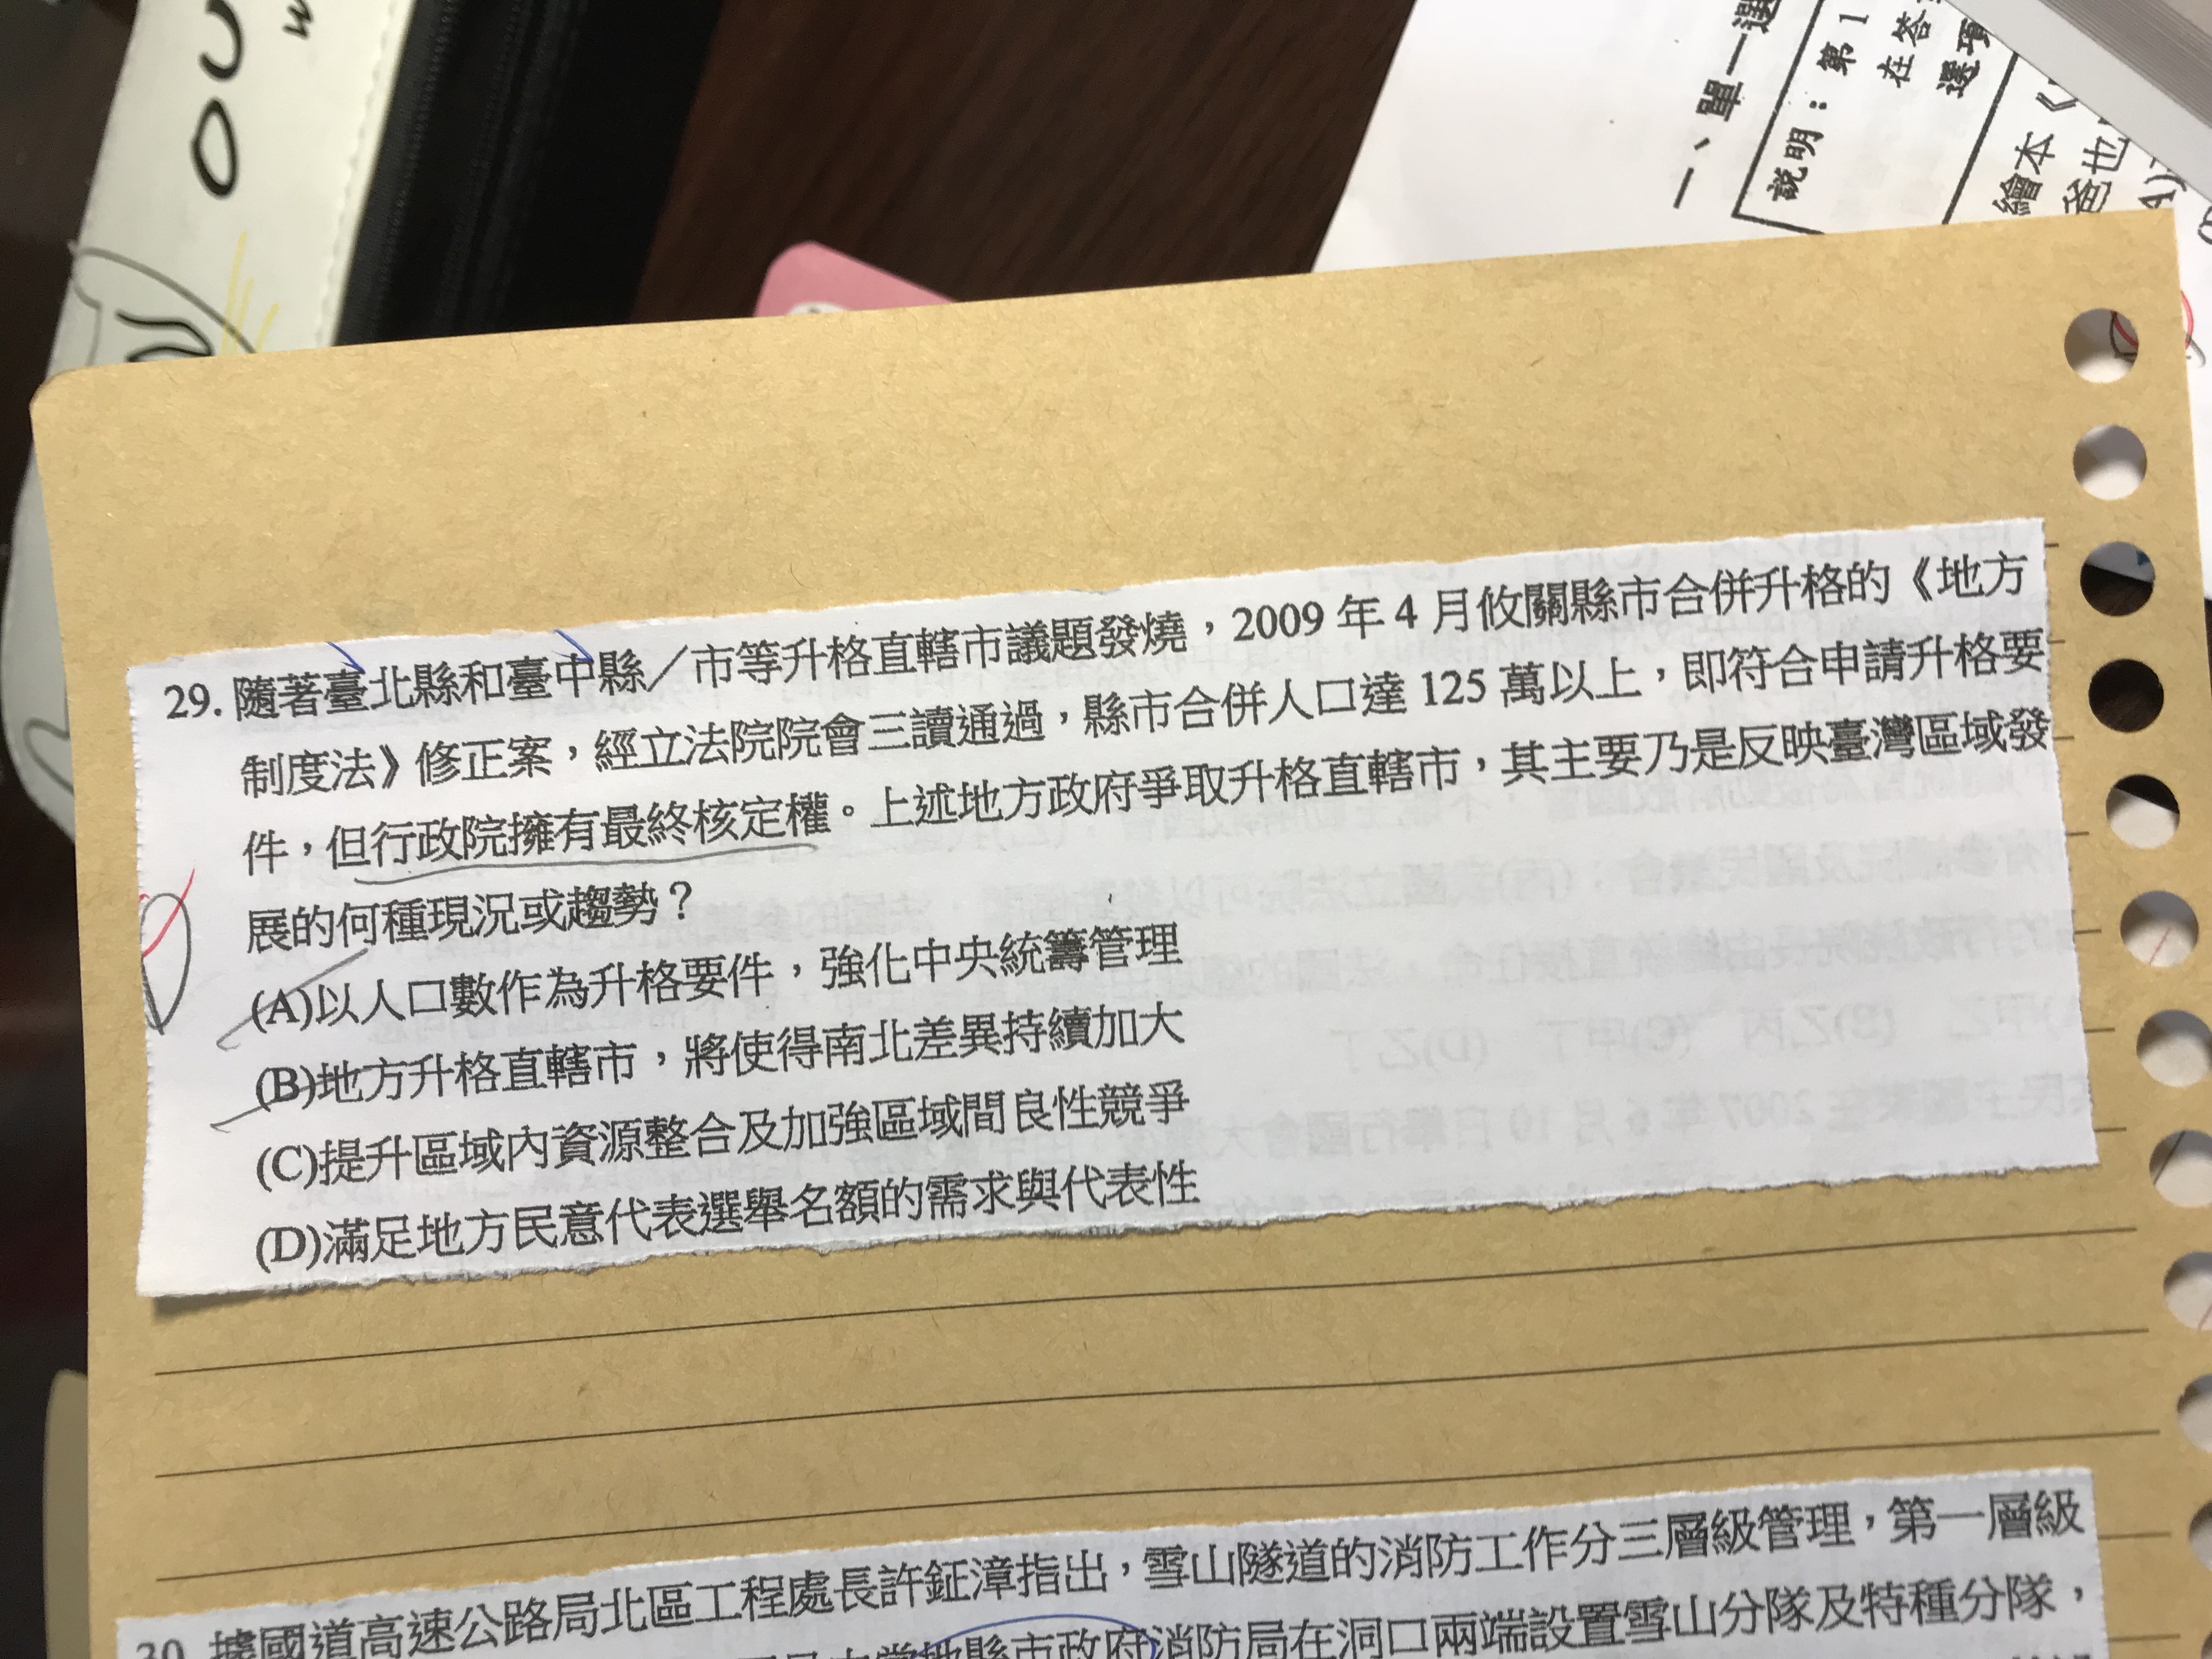 OU
w
一、單一選
說明：第1
在答
選項
繪本《
爸也
A)
29. 隨著臺北縣和臺中縣／市等升格直轄市議題發燒，2009 年 4 月攸關縣市合併升格的《地方
制度法》修正案，經立法院院會三讀通過，縣市合併人口達 125 萬以上，即符合申請升格要
件，但行政院擁有最終核定權。上述地方政府爭取升格直轄市，其主要乃是反映臺灣區域發
展的何種現況或趨勢？
(A)以人口數作為升格要件，強化中央統籌管理
(B)地方升格直轄市，將使得南北差異持續加大
(C)提升區域內資源整合及加強區域間良性競爭
(D)滿足地方民意代表選舉名額的需求與代表性
30. 據國道高速公路局北區工程處長許鉦漳指出，雪山隧道的消防工作分三層級管理，第一層級
當地縣市政府消防局在洞口兩端設置雪山分隊及特種分隊，